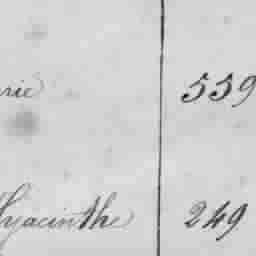 rie 559
Hyacinthe 249